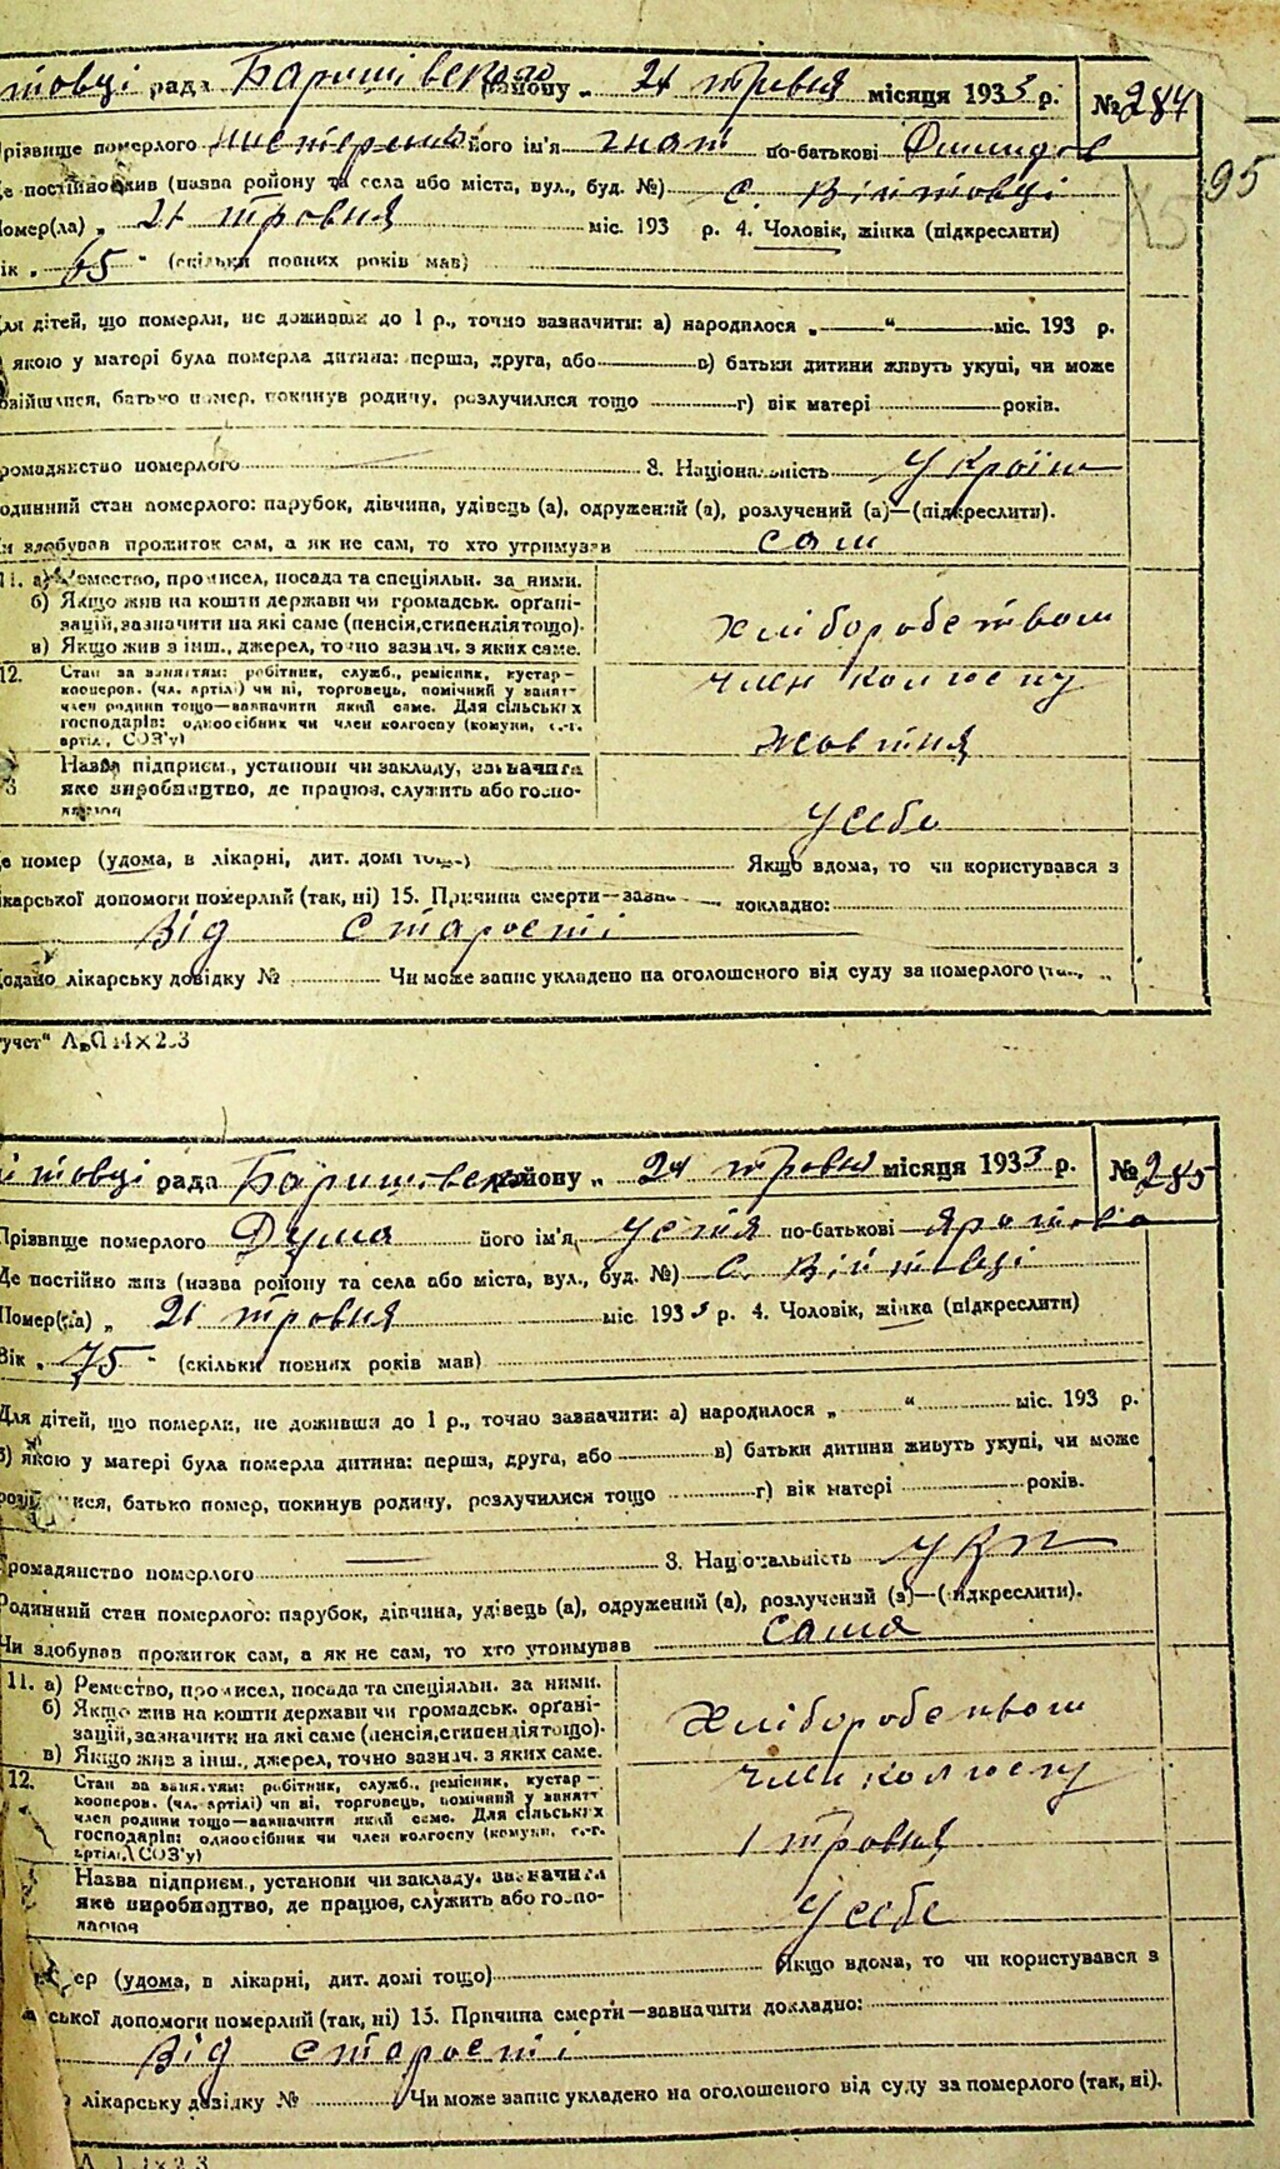 товці рада Баришівського району „ 21 травня місяця 1933 р. № 284
95
Прізвище померлого його ім'я Гнат по-батькові
Де постійно жив (назва району та села або міста, вул., буд. №) с. Війтовці
Помер(ла) „ 21 травня міс. 193 р. 4. Чоловік, жінка (підкреслити)
Вік „ 65 " (скільки повних років мав)
Для дітей, що померли, не доживши до 1 р., точно зазначити: а) народилося „ “ міс. 193 р.
якою у матері була померла дитина: перша, друга, або в) батьки дитини живуть укупі, чи може
розійшлися, батько помер, покинув родину, розлучилися тощо г) вік матері років.
Громадянство померлого 8. Національність Україн
Родинний стан померлого: парубок, дівчина, удівець (а), одружений (а), розлучений (а)—(підкреслити).
Чи здобував прожиток сам, а як не сам, то хто утримував сам
11. а) Ремество, промисел, посада та спеціяльн. за ними.
б) Якщо жив на кошти держави чи громадськ. органі-
зацій, зазначити на які саме (пенсія, стипендія тощо).
в) Якщо жив з інш., джерел, точно зазнач. з яких саме.
хліборобством
12. Стан за заняттям: робітник, служб., ремісник, кустар—
кооперов. (чл. артілі) чи ні, торговець, помічний у занятт
член родини тощо—зазначити який саме. Для сільських
господарів: одноосібник чи член колгоспу (комуни, с.-г.
артіл., СОЗ'у)
член колгоспу
жовтня
Назва підприєм., установи чи закладу, зазначити
яке виробництво, де працює, служить або госпо-
дарює
у себе
Де помер (удома, в лікарні, дит. домі тощо) Якщо вдома, то чи користувався з
лікарської допомоги померлий (так, ні) 15. Причина смерти—зазна докладно:
Від старості
Додано лікарську довідку № Чи може запис укладено на оголошеного від суду за померлого
учет“
й товці рада Баришівського району „ 21 травня місяця 1933 р. № 285
Прізвище померлого Дума його ім'я Устя по-батькові
Де постійно жив (назва району та села або міста, вул., буд. №) с. Війтовці
Помер(ла) „ 21 травня міс. 1933 р. 4. Чоловік, жінка (підкреслити)
Вік „ 75 " (скільки повних років мав)
Для дітей, що померли, не доживши до 1 р., точно зазначити: а) народилося „ “ міс. 193 р.
б) якою у матері була померла дитина: перша, друга, або в) батьки дитини живуть укупі, чи може
розійшлися, батько помер, покинув родину, розлучилися тощо г) вік матері років.
Громадянство померлого 8. Національність Укр
Родинний стан померлого: парубок, дівчина, удівець (а), одружений (а), розлучений (а)—(підкреслити).
Чи здобував прожиток сам, а як не сам, то хто утримував сама
11. а) Ремество, промисел, посада та спеціяльн. за ними.
б) Якщо жив на кошти держави чи громадськ. органі-
зацій, зазначити на які саме (пенсія, стипендія тощо).
в) Якщо жив з інш., джерел, точно зазнач. з яких саме.
Хліборобством
12. Стан за заняттям: робітник, служб., ремісник, кустар—
кооперов. (чл. артілі) чи ні, торговець, помічний у занятт
член родини тощо—зазначити який саме. Для сільських
господарів: одноосібник чи член колгоспу (комуни, с.-г.
артілі, СОЗ'у)
член колгоспу
1 травня
Назва підприєм., установи чи закладу, зазначити
яке виробництво, де працює, служить або госпо-
дарює
у себе
ер (удома, в лікарні, дит. домі тощо) Якщо вдома, то чи користувався з
ської допомоги померлий (так, ні) 15. Причина смерти—зазначити докладно:
Від старості
лікарську довідку № Чи може запис укладено на оголошеного від суду за померлого (так, ні).